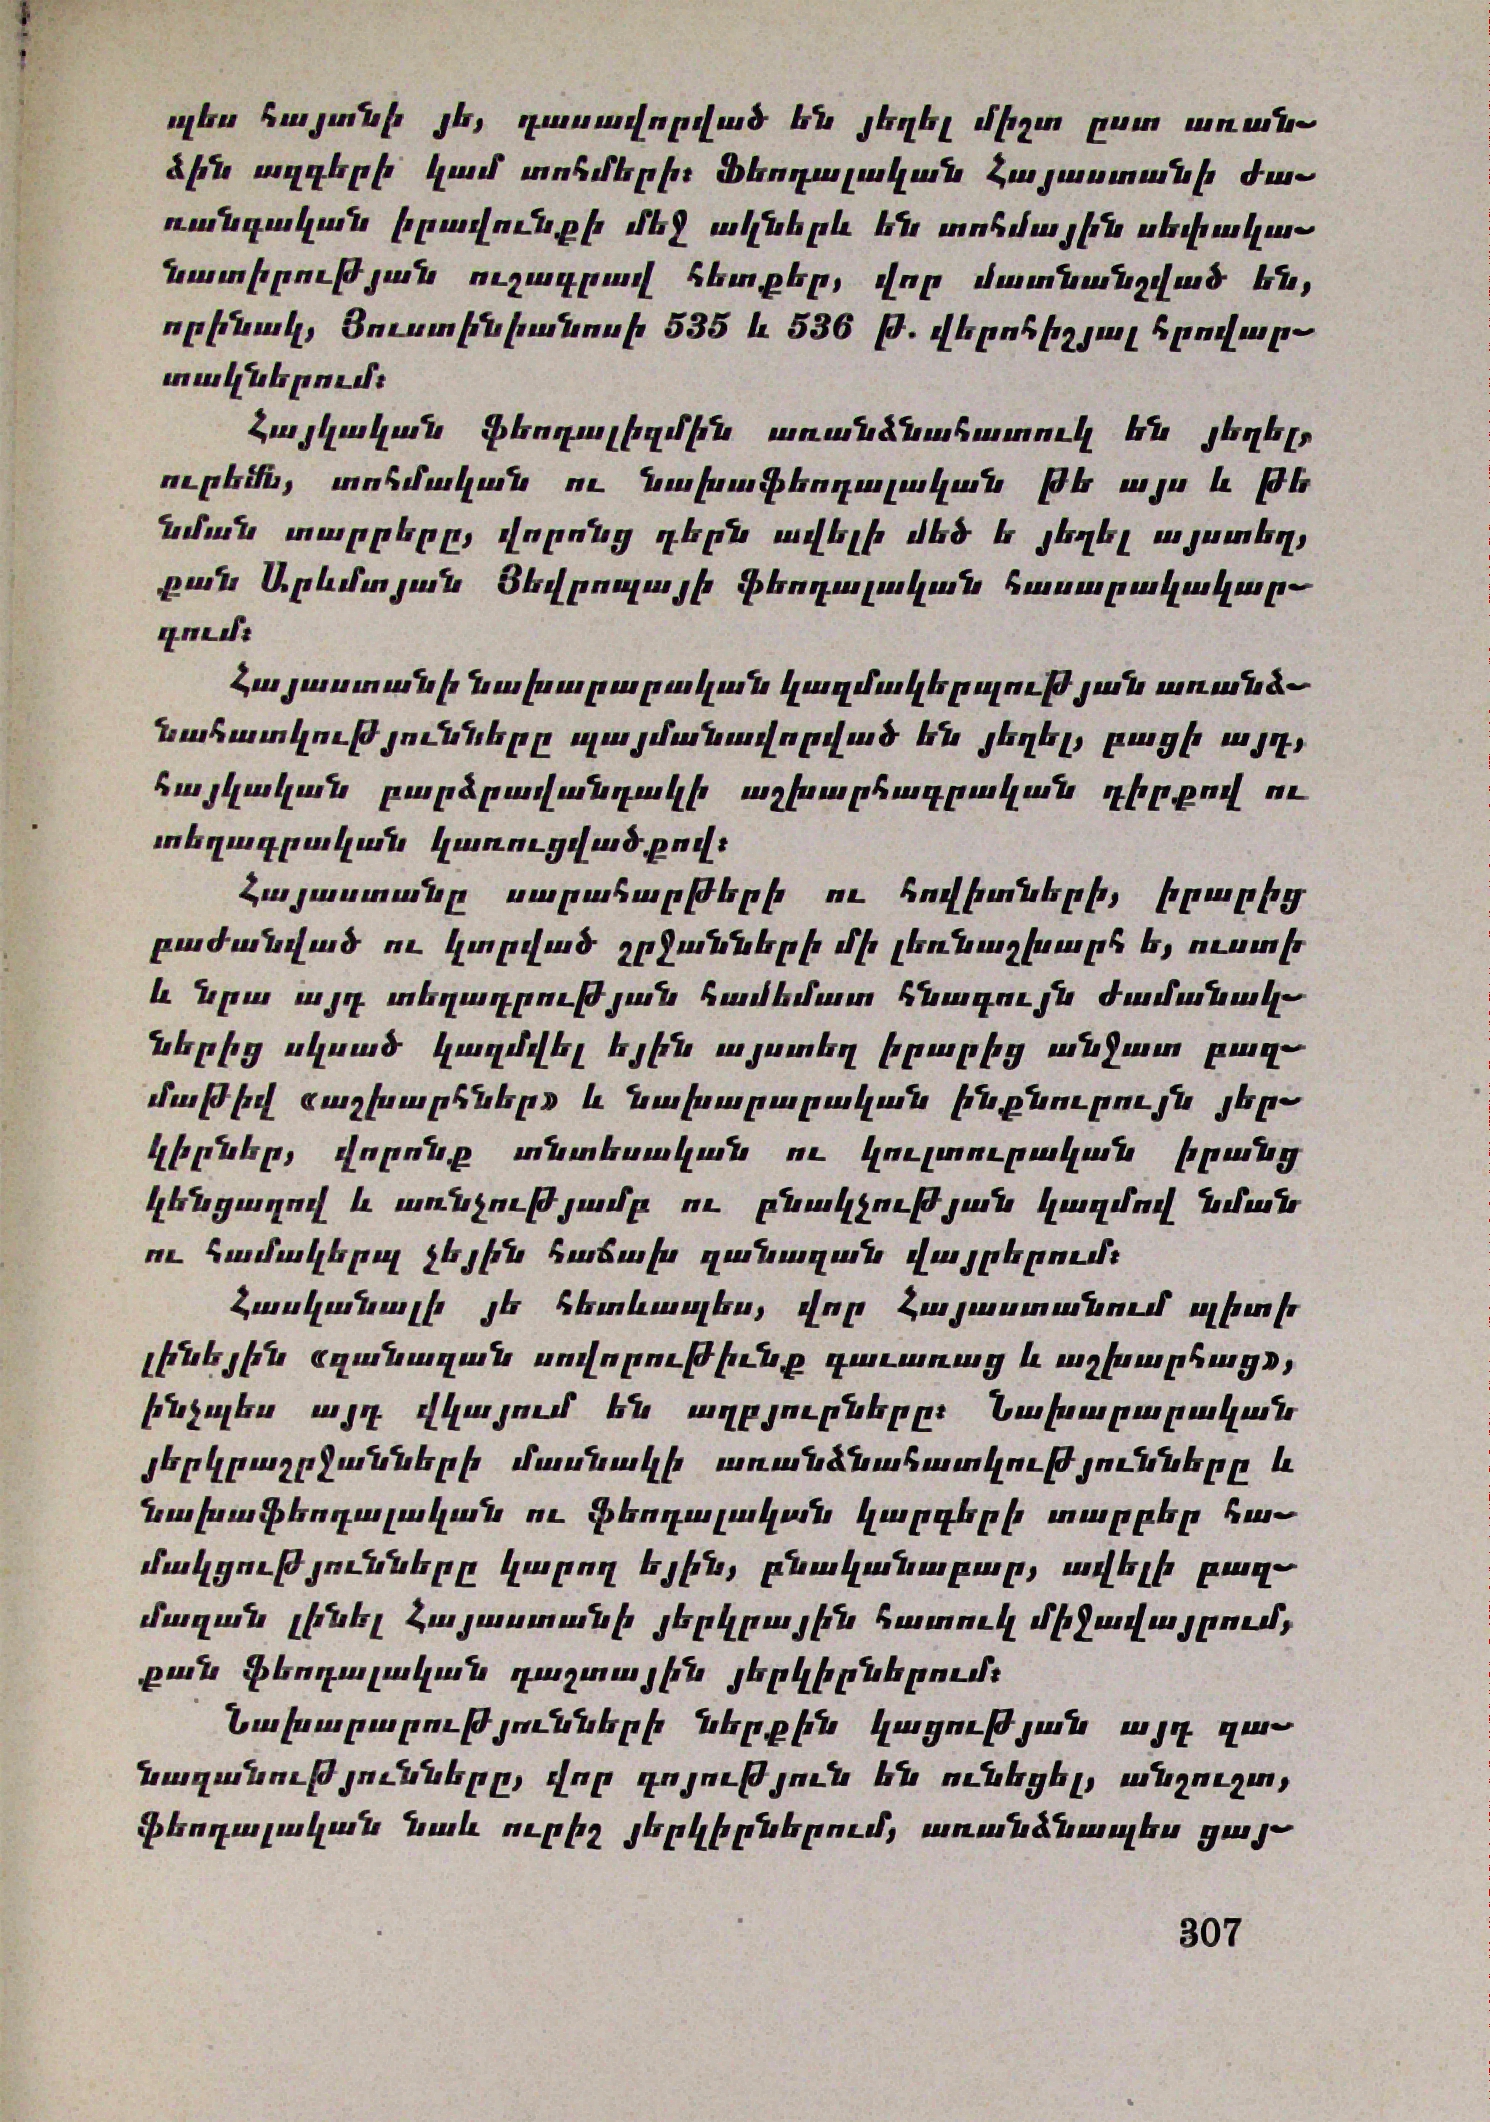 պես հայտնի յե, դասավորված են յեղել միշտ ըստ առան֊
ձին ազգերի կամ տոհմերի։ Ֆեոդալական Հայաստանի ժա֊
ռանգական իրավունքի մեջ ակներև են տոհմային սեփակա֊
նատիրության ուշագրավ հետքեր, վոր մատնանշված են,
որինակ, Յուստինիանոսի 535 և 536 թ. վերոհիշյալ հրովար֊
տակներում։
Հայկական ֆեոդալիզմին առանձնահատուկ են յեղել,
ուրեմն, տոհմական ու նախաֆեոդալական թե այս և թե
նման տարրերը, վորոնց դերն ավելի մեծ ե յեղել այստեղ,
քան Արևմտյան Յեվրոպայի ֆեոդալական հասարակակար֊
գում։
Հայաստանի նախարարական կազմակերպության առանձ֊
նահատկությունները պայմանավորված են յեղել, բացի այդ,
հայկական բարձրավանդակի աշխարհագրական դիրքով ու
տեղագրական կառուցվածքով։
Հայաստանը սարահարթերի ու հովիտների, իրարից
բաժանված ու կտրված շրջանների մի լեռնաշխարհ ե, ուստի
և նրա այդ տեղադրության համեմատ հնագույն ժամանակ֊
ներից սկսած կազմվել եյին այստեղ իրարից անջատ բազ֊
մաթիվ «աշխարհներ» և նախարարական ինքնուրույն յեր֊
կիրներ, վորոնք տնտեսական ու կուլտուրական իրանց
կենցաղով և առնչությամբ ու բնակչության կազմով նման
ու համակերպ չեյին հաճախ զանազան վայրերում։
Հասկանալի յե հետևապես, վոր Հայաստանում պիտի
լինեյին «զանազան սովորութիւնք գաւառաց և աշխարհաց»,
ինչպես այդ վկայում են աղբյուրները։ Նախարարական
յերկրաշրջանների մասնակի առանձնահատկությունները և
նախաֆեոդալական ու ֆեոդալական կարգերի տարբեր հա֊
մակցությունները կարող եյին, բնականաբար, ավելի բազ֊
մազան լինել Հայաստանի յերկրային հատուկ միջավայրում,
քան ֆեոդալական դաշտային յերկիրներում։
Նախարարությունների ներքին կացության այդ զա֊
նազանությունները, վոր գոյություն են ունեցել, անշուշտ,
ֆեոդալական նաև ուրիշ յերկիրներում, առանձնապես ցայ֊
307